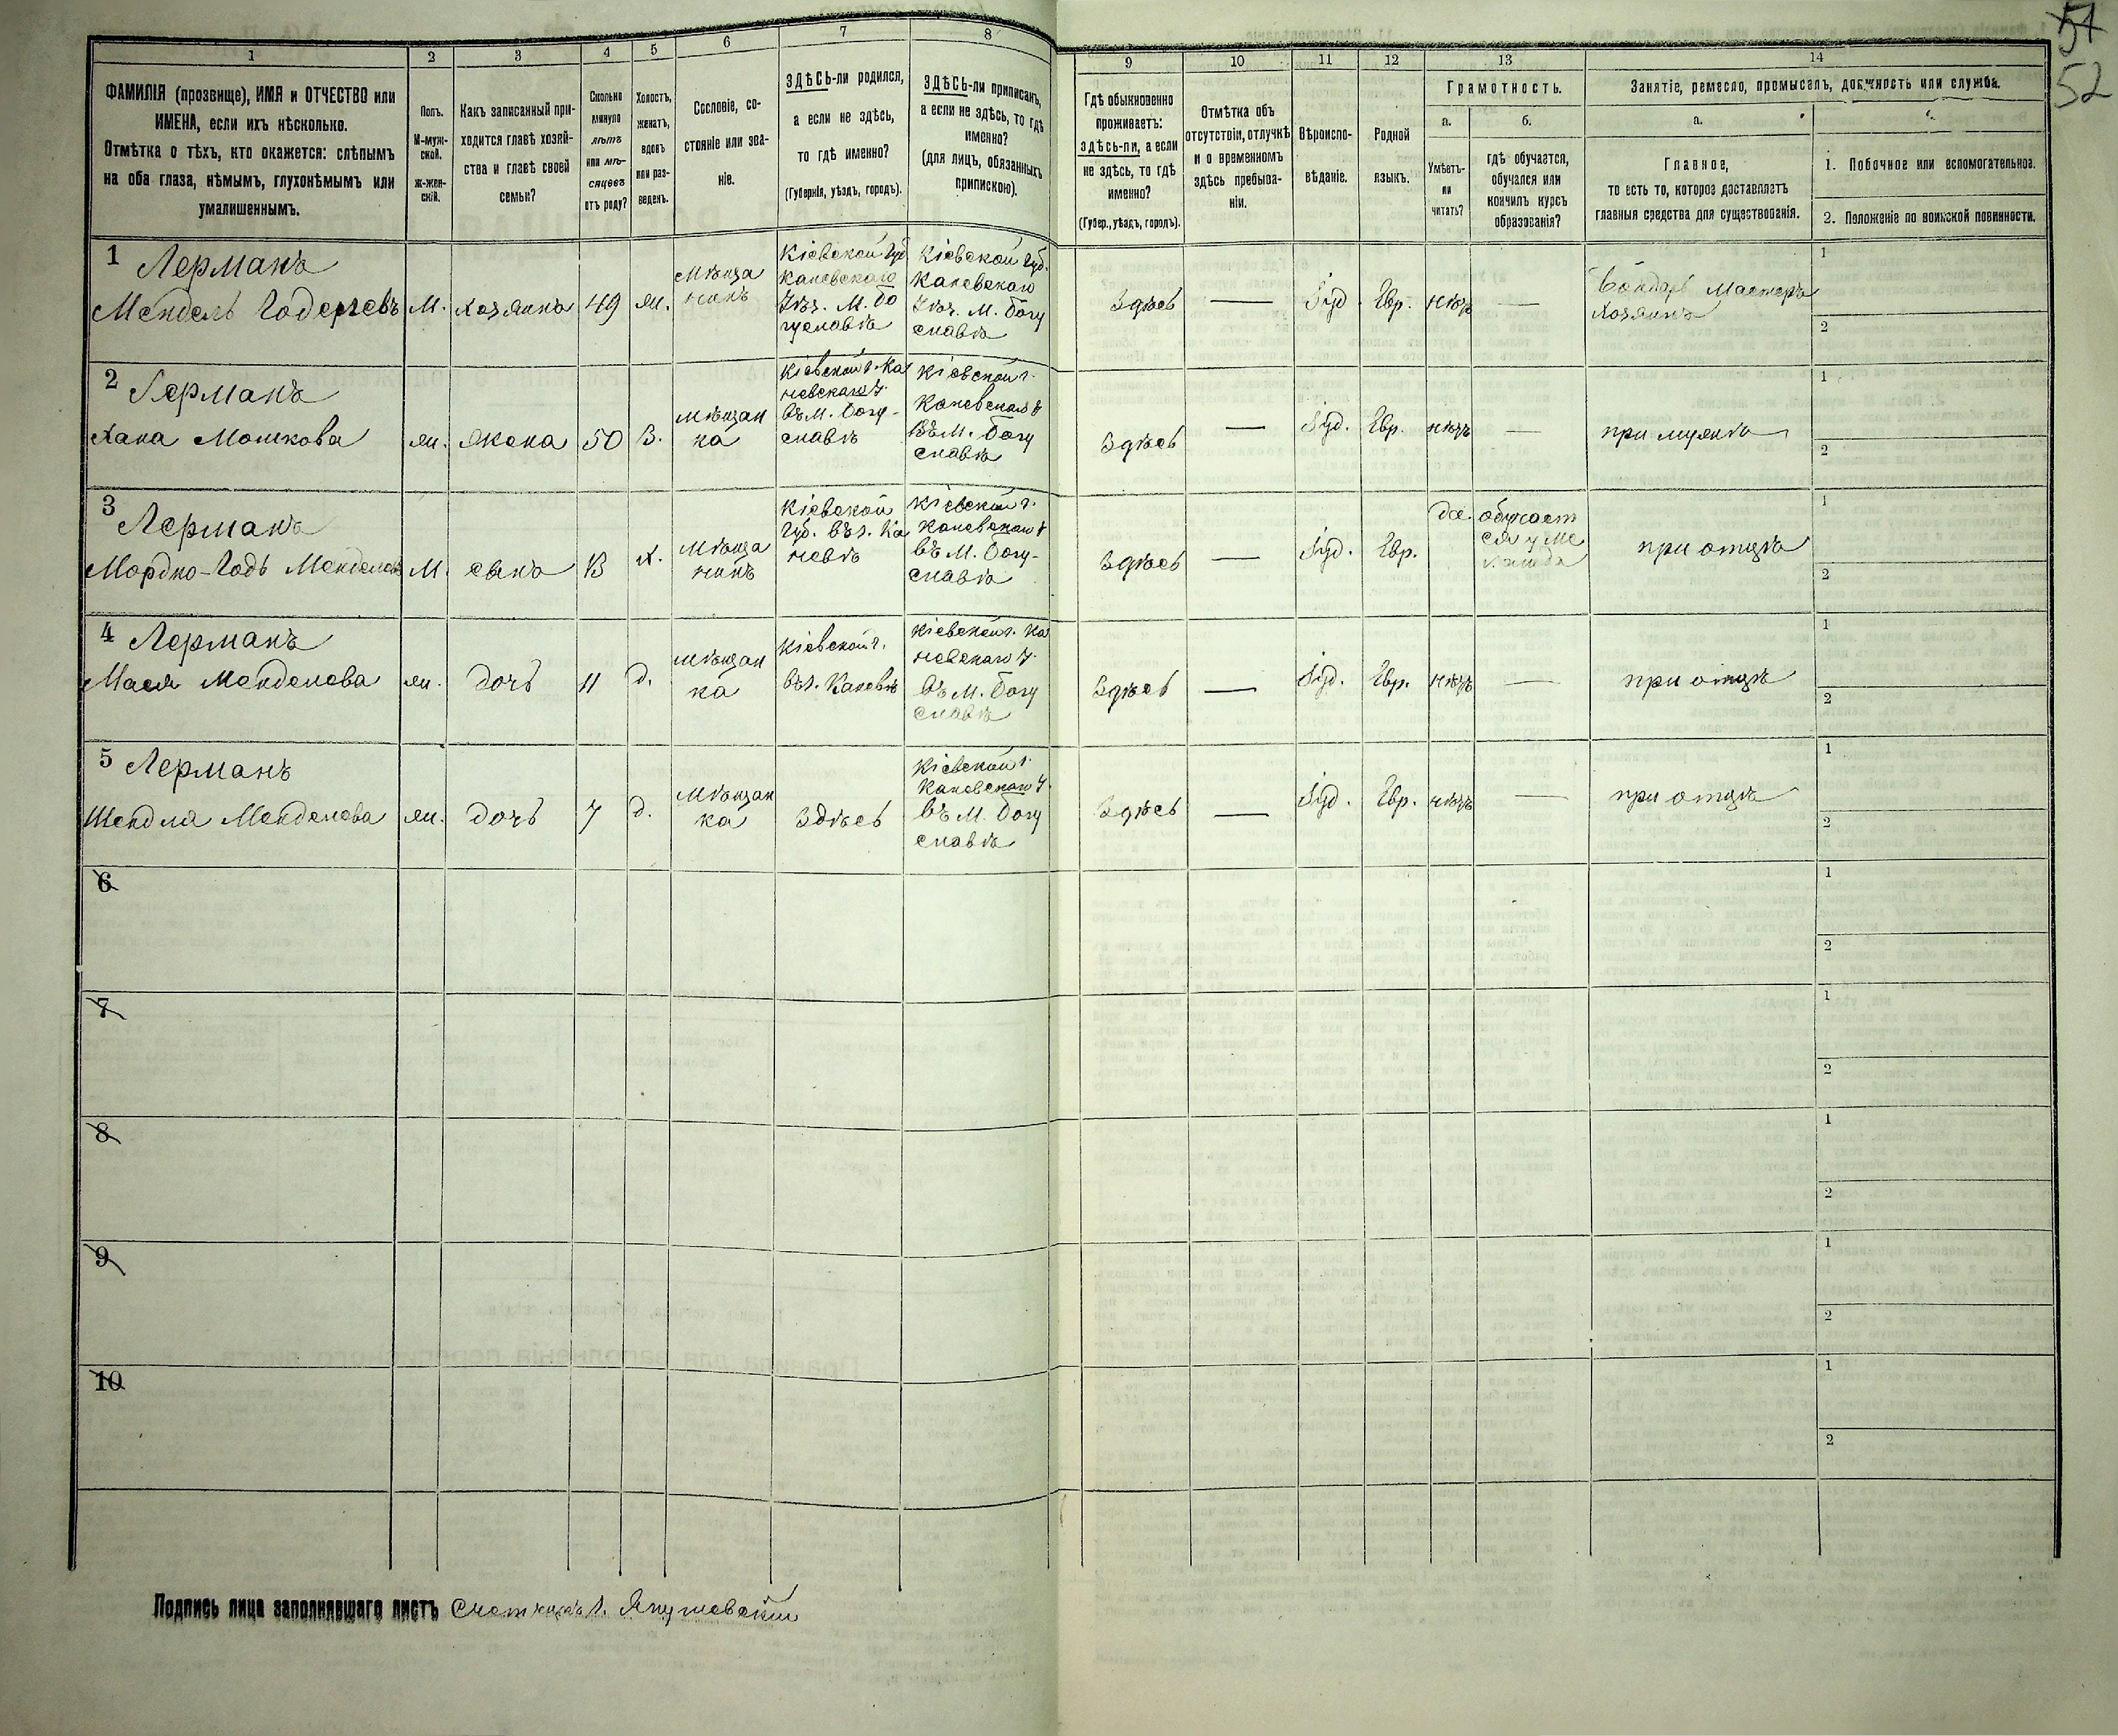 51
52
1
2
3
4
5
6
7
8
9
10
11
12
13
14
ФАМИЛІЯ (прозвище), ИМЯ и ОТЧЕСТВО или
ИМЕНА, если ихъ нѣсколько.
Отмѣтка о тѣхъ, кто окажется: слѣпымъ
на оба глаза, нѣмымъ, глухонѣмымъ или
умалишеннымъ.
Полъ.
М-муж-
ской.
ж-жен-
скій.
Какъ записанный при-
ходится главѣ хозяй-
ства и главѣ своей
семьи?
Сколько
минуло
лѣтъ
или мѣ-
сяцевъ
отъ роду?
Холостъ,
женатъ,
вдовъ
или раз-
веденъ.
Сословіе, со-
стояніе или зва-
ніе.
ЗДѢСЬ-ли родился,
а если не здѣсь,
то гдѣ именно?
(Губернія, уѣздъ, городъ).
ЗДѢСЬ-ли приписанъ,
а если не здѣсь, то гдѣ
именно?
(для лицъ, обязанныхъ
припискою).
Гдѣ обыкновенно
проживаетъ:
здѣсь-ли, а если
не здѣсь, то гдѣ
именно?
(Губер., уѣздъ, городъ).
Отмѣтка объ
отсутствіи, отлучкѣ
и о временномъ
здѣсь пребыва-
ніи.
Вѣроиспо-
вѣданіе.
Родной
языкъ.
Грамотность.
а.
Умѣетъ-
ли
читать?
б.
гдѣ обучается,
обучался или
кончилъ курсъ
образованія?
Занятіе, ремесло, промыселъ, должность или служба.
а.
Главное,
то есть то, которое доставляетъ
главныя средства для существованія.
1. Побочное или вспомогательное.
2. Положеніе по воинской повинности.
1 Лерманъ
Мендель М. Хозяинъ 49 ж.
Мѣща
нинъ
Кіевской Губ
Каневскаго
Уѣз. М. Бо
гуславѣ
Кіевской Губ.
Каневскаго
Уѣз. М. Богу
славѣ
Здѣсь — Іуд. Евр. нѣтъ —
Бондарь Мастеръ
Хозяинъ
1
2
2 Лерманъ
Хана Мошкова жн. Жена 50 З.
Мѣщан
ка
Кіевской г. Ка
невскаго У.
въ М. Богу-
славѣ
Кіевской г.
Каневскаго У
въ М. Богу
славѣ
Здѣсь — Іуд. Евр. нѣтъ — при мужѣ
1
2
3 Лерманъ
Мордко-Годь М. сынъ 13 Х.
Мѣща
нинъ
Кіевской
Губ. въ г. Ка
невѣ
Кіевской г.
Каневскаго У
въ М. Богу-
славѣ
Здѣсь — Іуд. Евр. да.
обучает
ся у Ме
ламда
при отцѣ
1
2
4 Лерманъ
Мася Менделева жн. дочь 11 д.
Мѣщан
ка
Кіевской г.
въ г. Каневѣ
Кіевской г. Ка
невскаго У.
въ М. Богу
славѣ
Здѣсь — Іуд. Евр. нѣтъ — при отцѣ
1
2
5 Лерманъ
Шендля Менделева жн. дочь 7 д.
Мѣщан
ка
Здѣсь
Кіевской г.
Каневскаго У.
въ М. Богу
славѣ
Здѣсь — Іуд. Евр. нѣтъ — при отцѣ
1
2
6
1
2
7
1
2
8
1
2
9
1
2
10
1
2
Подпись лица заполнявшаго листъ Счетчикъ Янушевскій